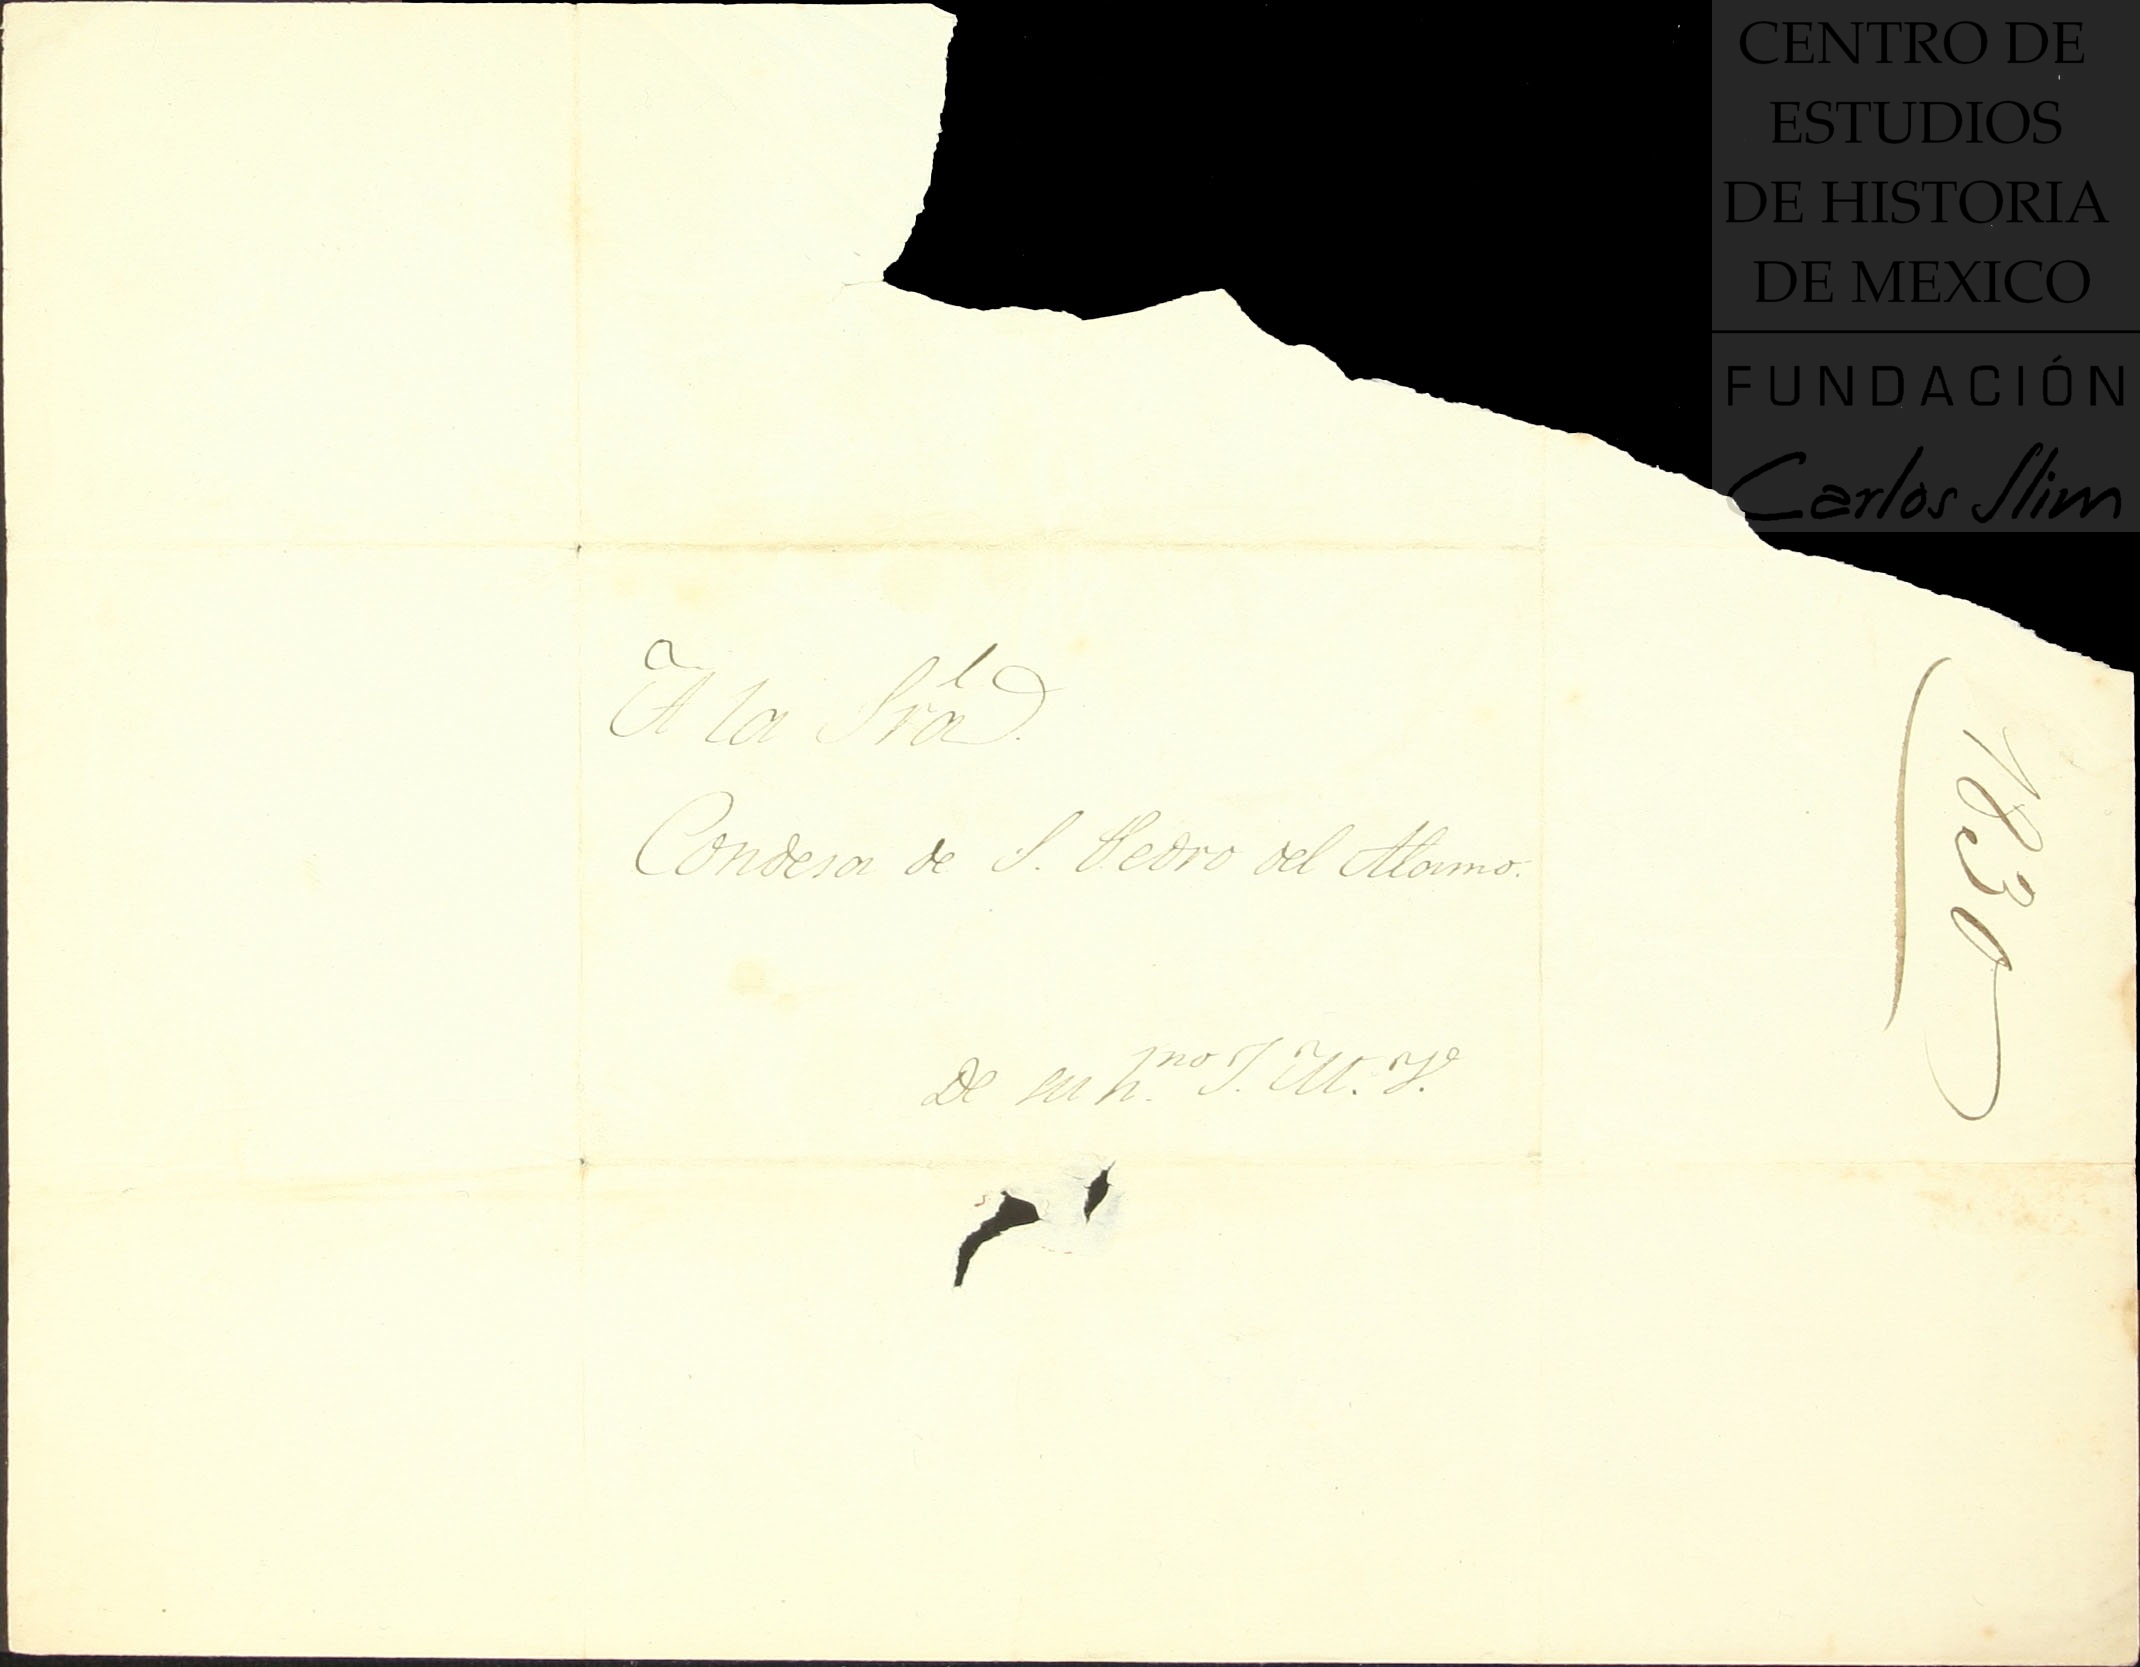 CENTRO DE
ESTUDIOS
DE HISTORIA
DE MEXICO
FUNDACIÓN
Carlos Slim
A la Sra
Condesa de S. Pedro del Alamo.
De su h.no J. M. V.
1830